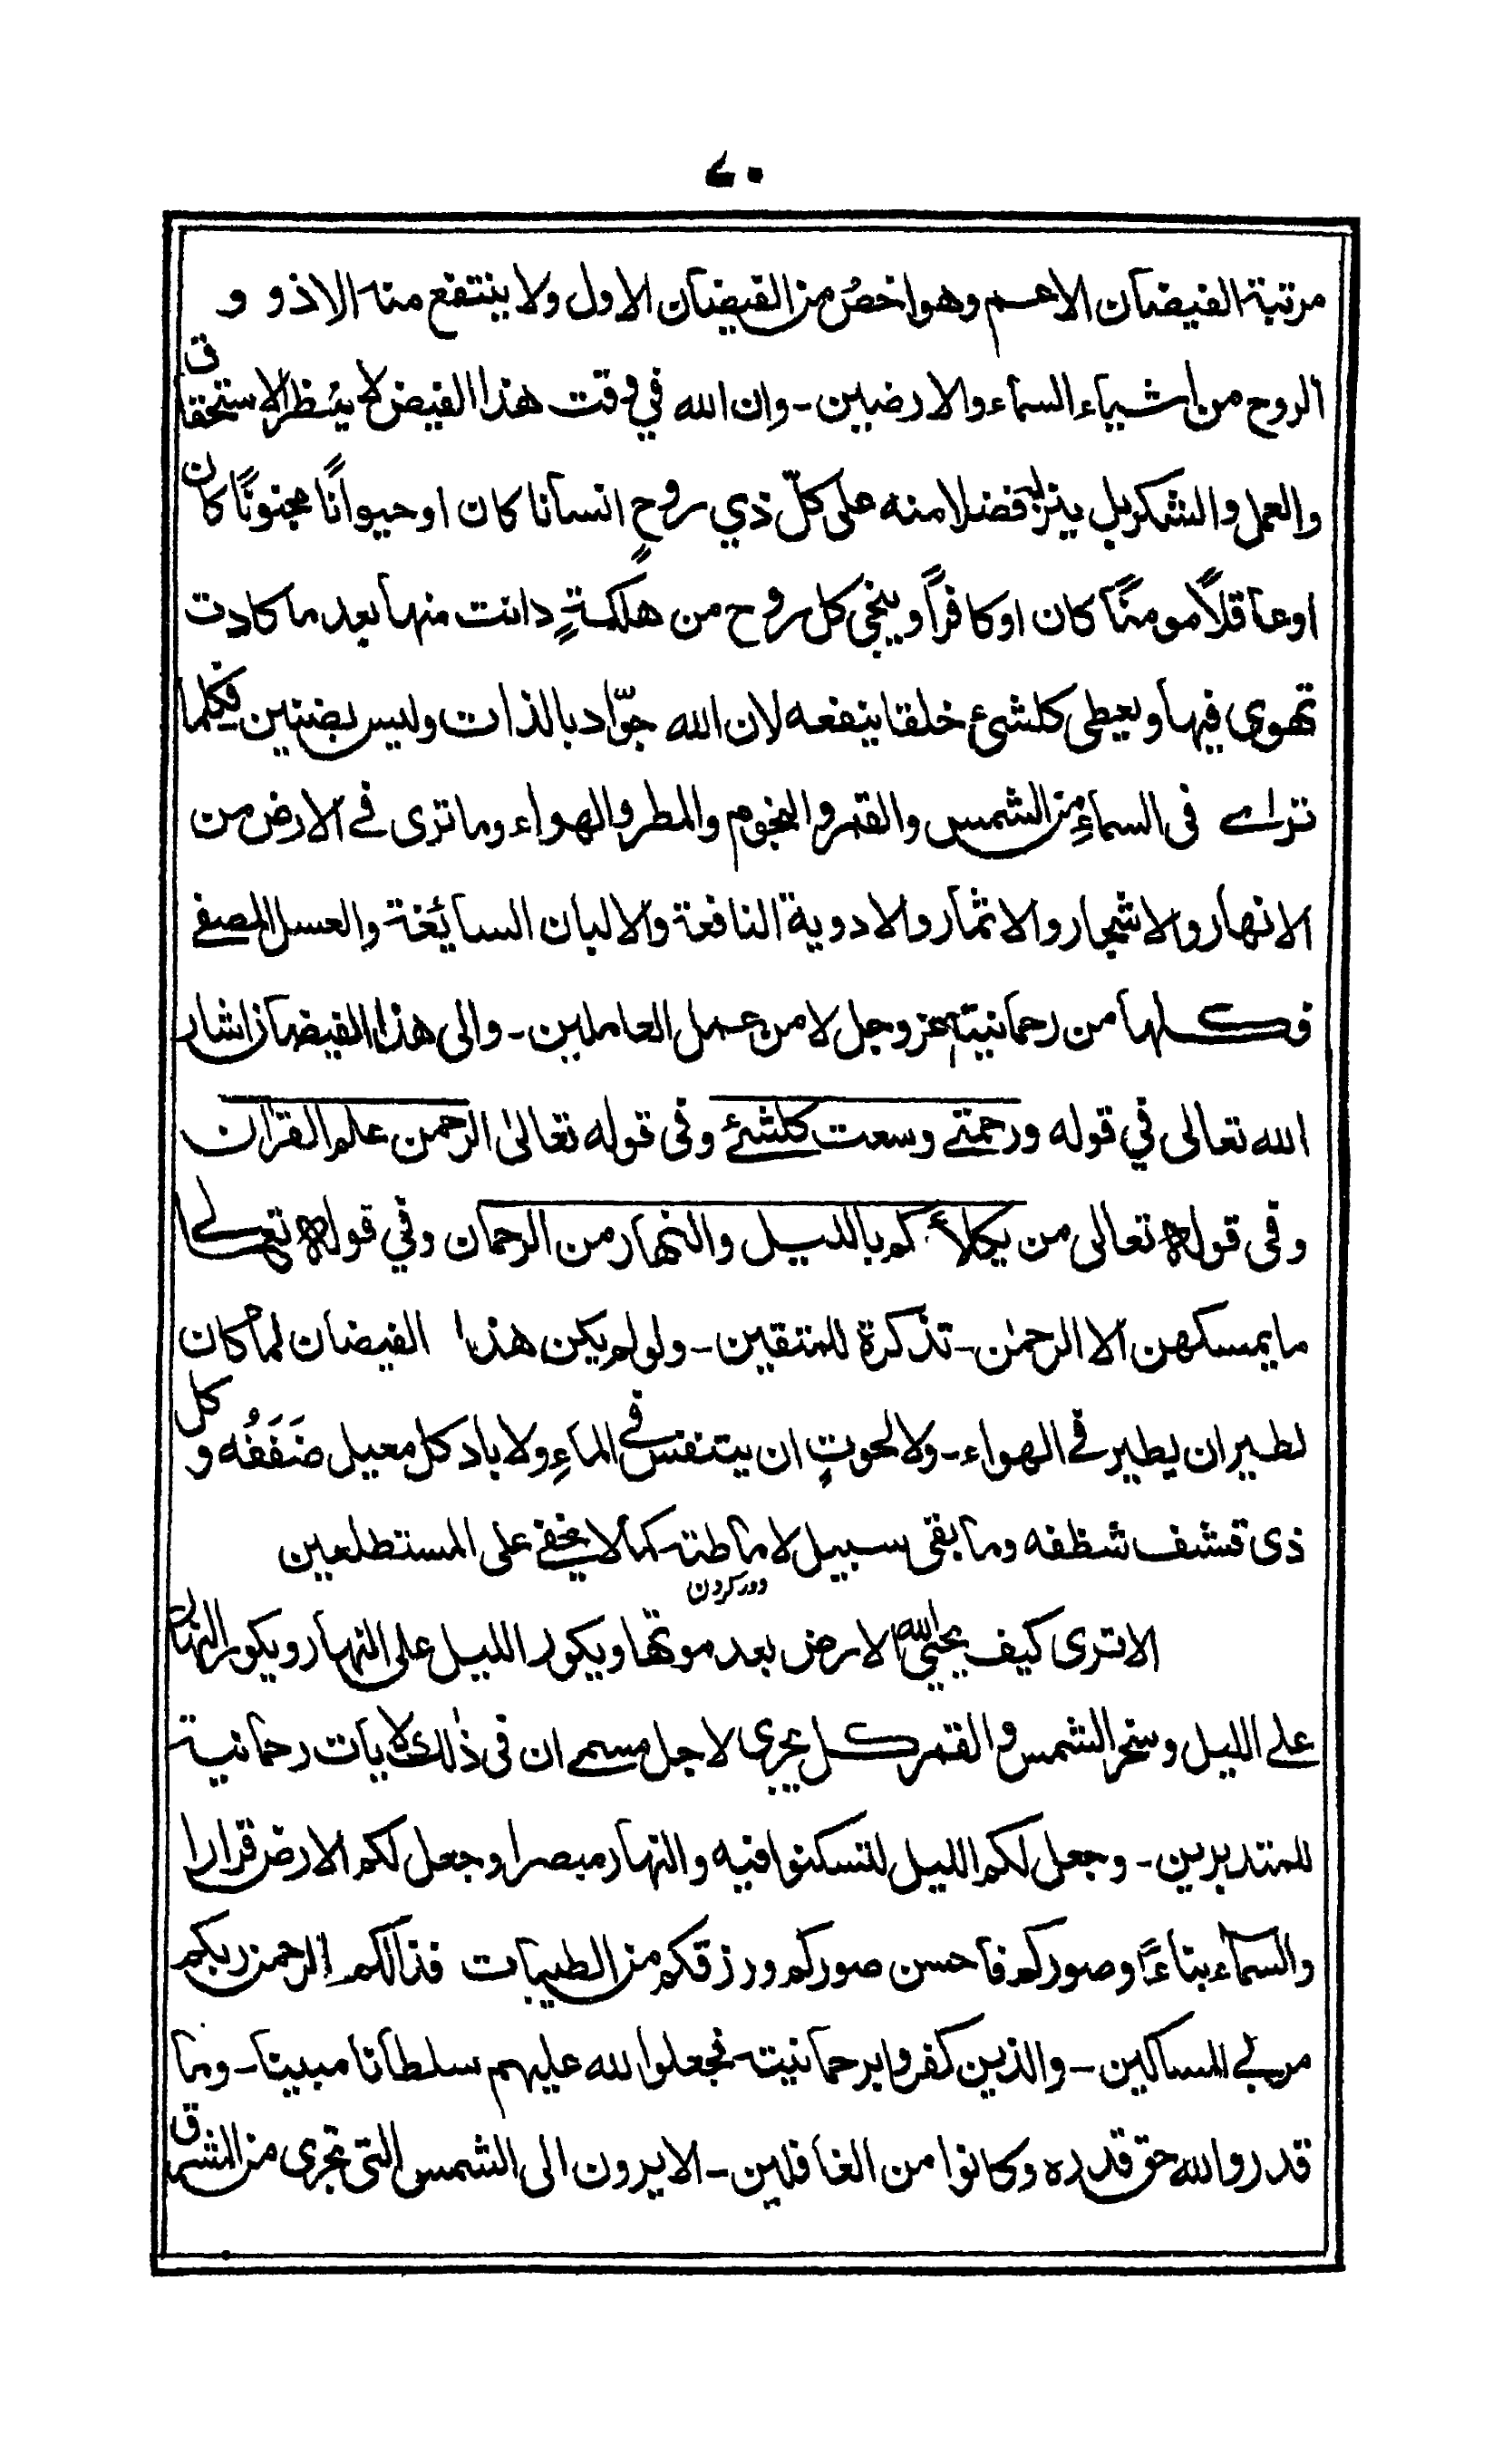 ۷۰
مرتبة الفيضان الاعم وهو اخصُ من الفيضان الاول ولا ينتفع منه الا ذوو
الروح من اشياء السماء والارضين - وان الله في وقت هذا الفيض لا ينظر الاستحقاق
والعمل والشكر بل ينزله فضلا منه على كلّ ذي روحٍ انسانا كان او حيوانًا مجنونًا كان
او عاقلًا مومنًا كان او كافرًا وينجى كل روح من هلكةٍ دانت منها بعد ما كادت
تهوى فيها ويعطى كلشئ خلقا ينفعه لان الله جوّاد بالذات وليس بضنين فكلما
ترائے فى السماءِ من الشمس والقمر والنجوم والمطر والهواء وما ترى فے الارض من
الانهار والاشجار والاثمار والادوية النافعة والالبان السائغة والعسل المصفے
فكلها من رحمانيته عز وجل لا من عمل العاملين - والى هذا الفيضان اشار
الله تعالى في قوله ورحمتے وسعت كلشئے وفى قوله تعالىٰ الرحمن علم القرٰان
وفى قوله تعالى من يكلأكم بالليل والنهار من الرحمان وفي قوله تعالے
ما يمسكهن الا الرحمٰن - تذكرة للمتقين - ولو لم يكن هذا الفيضان لما كان
لطير ان يطير فى الهواء - ولا لحوتٍ ان يتنفس فے الماءِ ولاباد كل معيل ضَفَفُه وكل
ذى قشف شظفه وما بقى سبيل لاماطته كما لا يخفے على المستطلعين
دور کردن
الا ترى كيف يحيي الله الارض بعد موتها ويكور الليل على النهار ويكور النهار
علے الليل وسخر الشمس والقمر كل يجرى لاجل مسمے ان فى ذٰلك لاٰيات رحمانية
للمتدبرين - وجعل لكم الليل لتسكنوا فيه والنهار مبصرا وجعل لكم الارض قرارا
والسماء بناءً وصوركم فاحسن صوركم ورزقكم من الطيبات فذالكم الرحمن ربكم
مربے المساكين - والذين كفروا برحمانيته فجعلوا لله عليهم سلطانا مبينا - وما
قدروا الله حق قدره وكانوا من الغافلين - الا يرون الى الشمس التى تجرى من المشرق